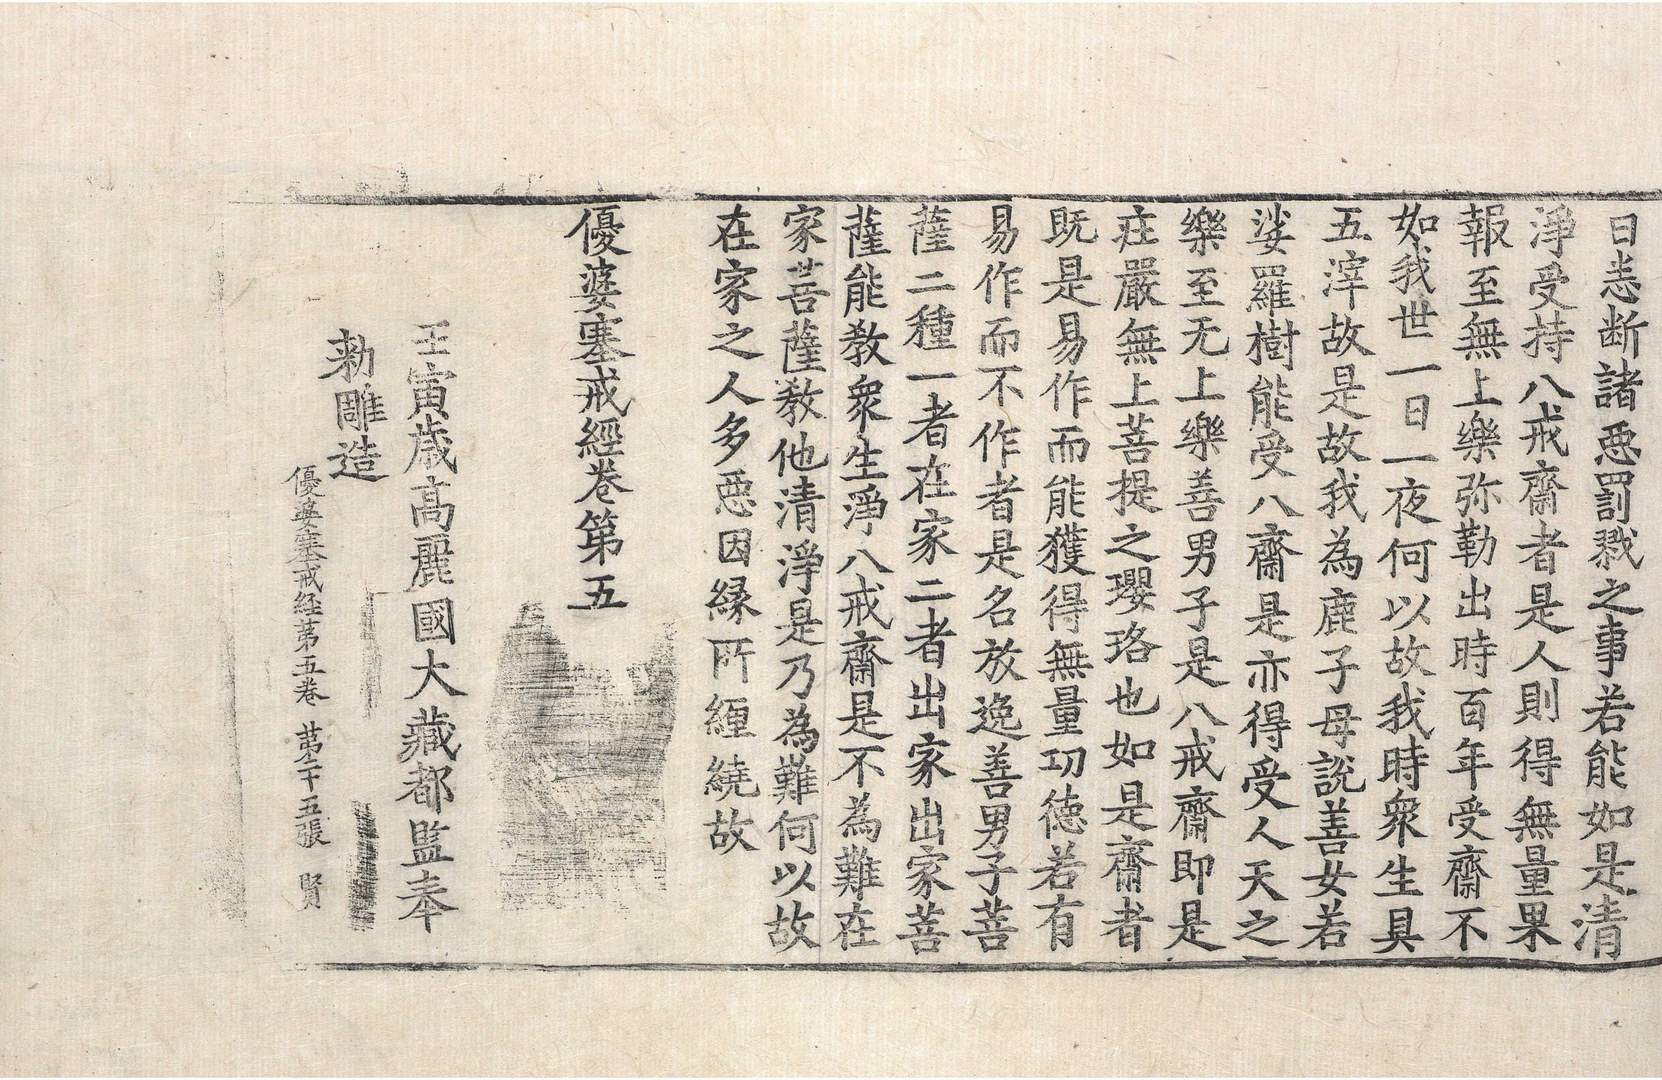 日恙断諸惡罰戮之事若能如是清
淨受持八戒齋者是人則得無量果
報至無上樂弥勒出時百年受齋不
如我世一日一夜何以故我時衆生具
五滓故是故我為鹿子母説善女若
娑羅樹能受八齋是亦得受人天之
樂至无上樂善男子是八戒齋即是
莊嚴無上菩提之瓔珞也如是齋者
既是易作而能獲得無量功德若有
易作而不作者是名放逸善男子菩
薩二種一者在家二者出家出家菩
薩能教衆生淨八戒齋是不為難在
家菩薩教他清淨是乃為難何以故
在家之人多惡因縁所纏繞故
優婆塞戒經卷第五
壬寅歳高麗國大藏都監奉
勅雕造
優婆塞戒経第五卷 第二十五張 賢